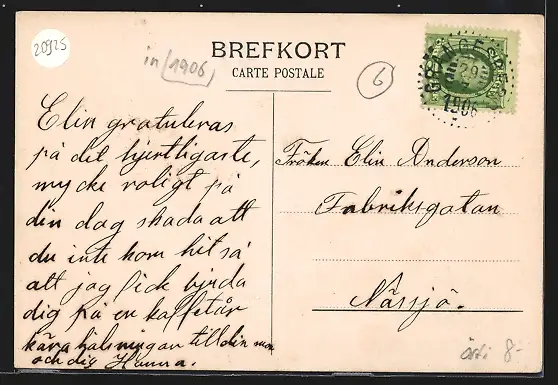 20925
BREFKORT
CARTE POSTALE
in (1906)
6
1906
Elin gratuleras
på det hjertligaste,
mycke roligt på
din dag skada att
du inte kom hit så
att jag fick bjuda
dig på en kaffetår
kära hälsningan till din
och dig Hanna.
Fröken Elin Anderson
Fabriksgatan
Nässjö.
8-